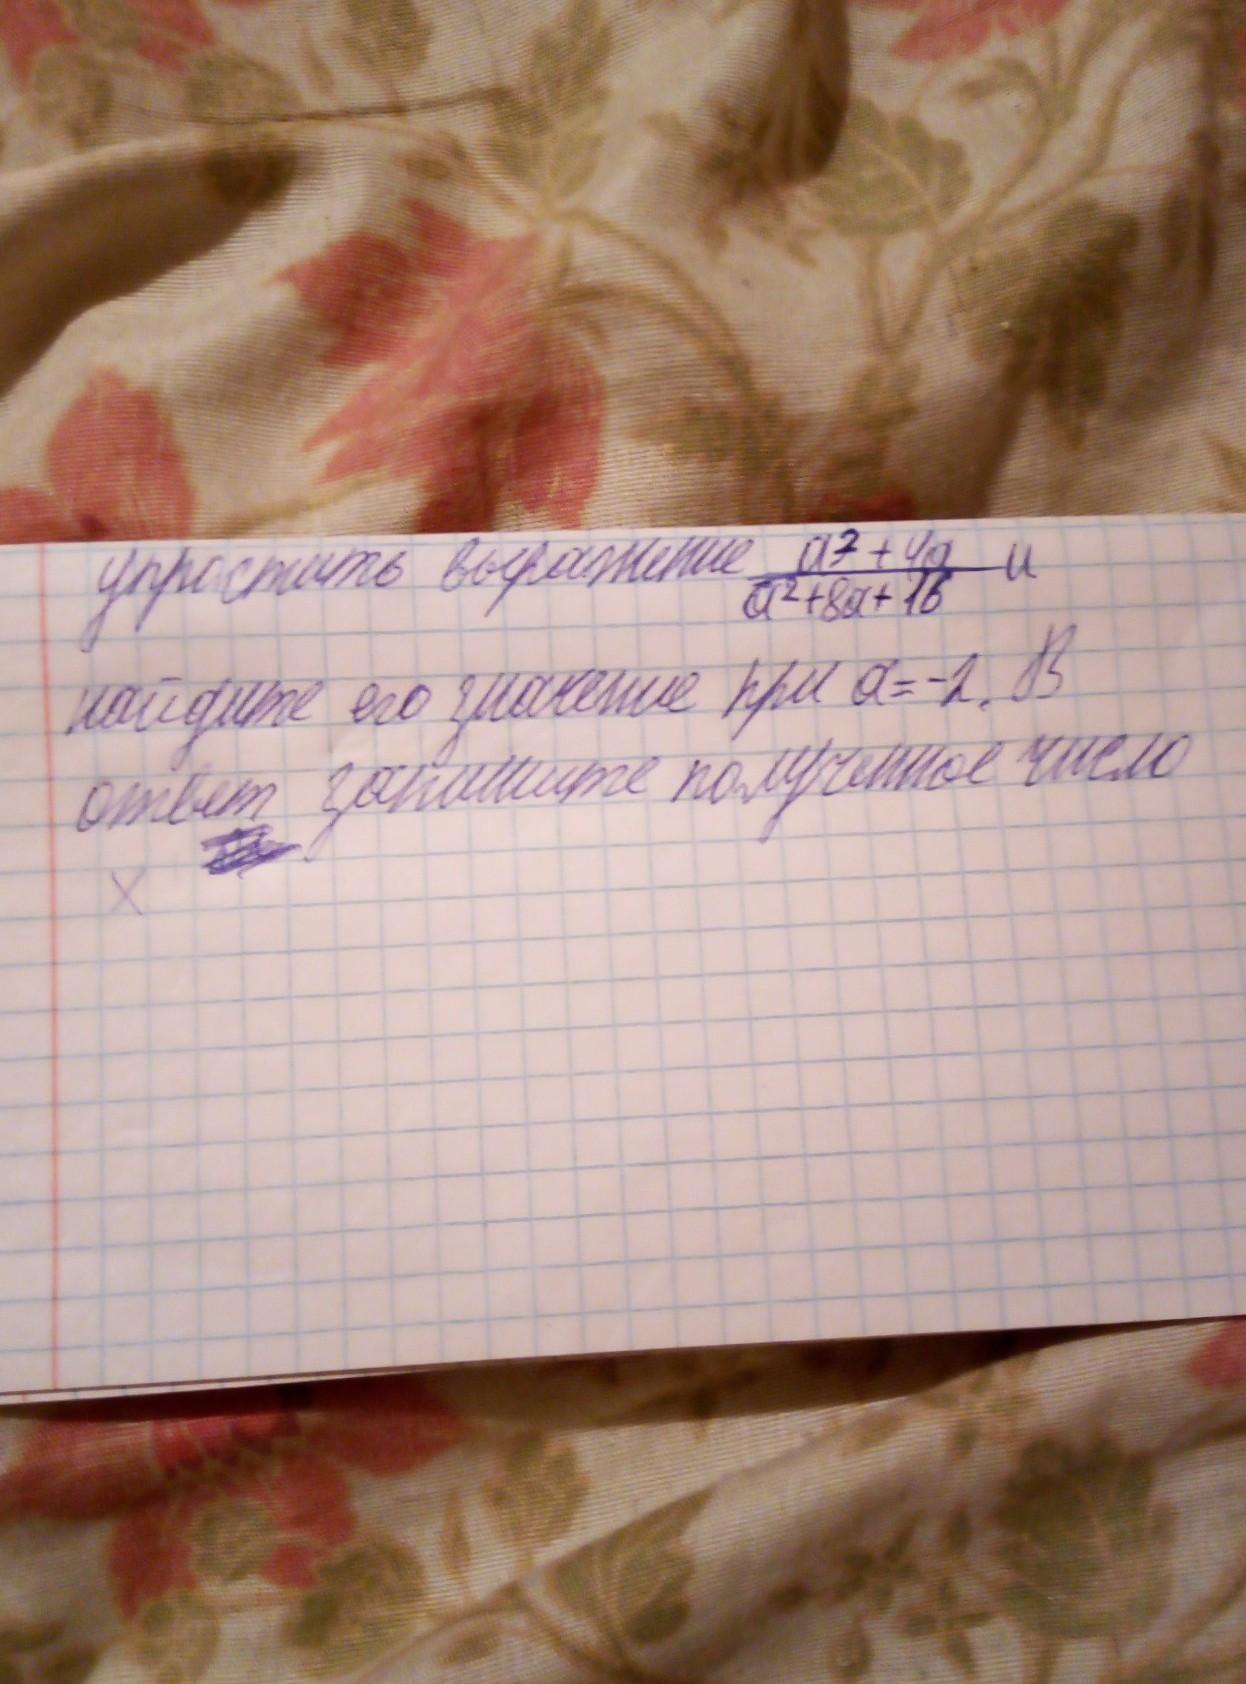 упростить выражение a²+4a / a²+8a+16 и
найдите его значение при a=-2. В
ответ запишите полученное число
x